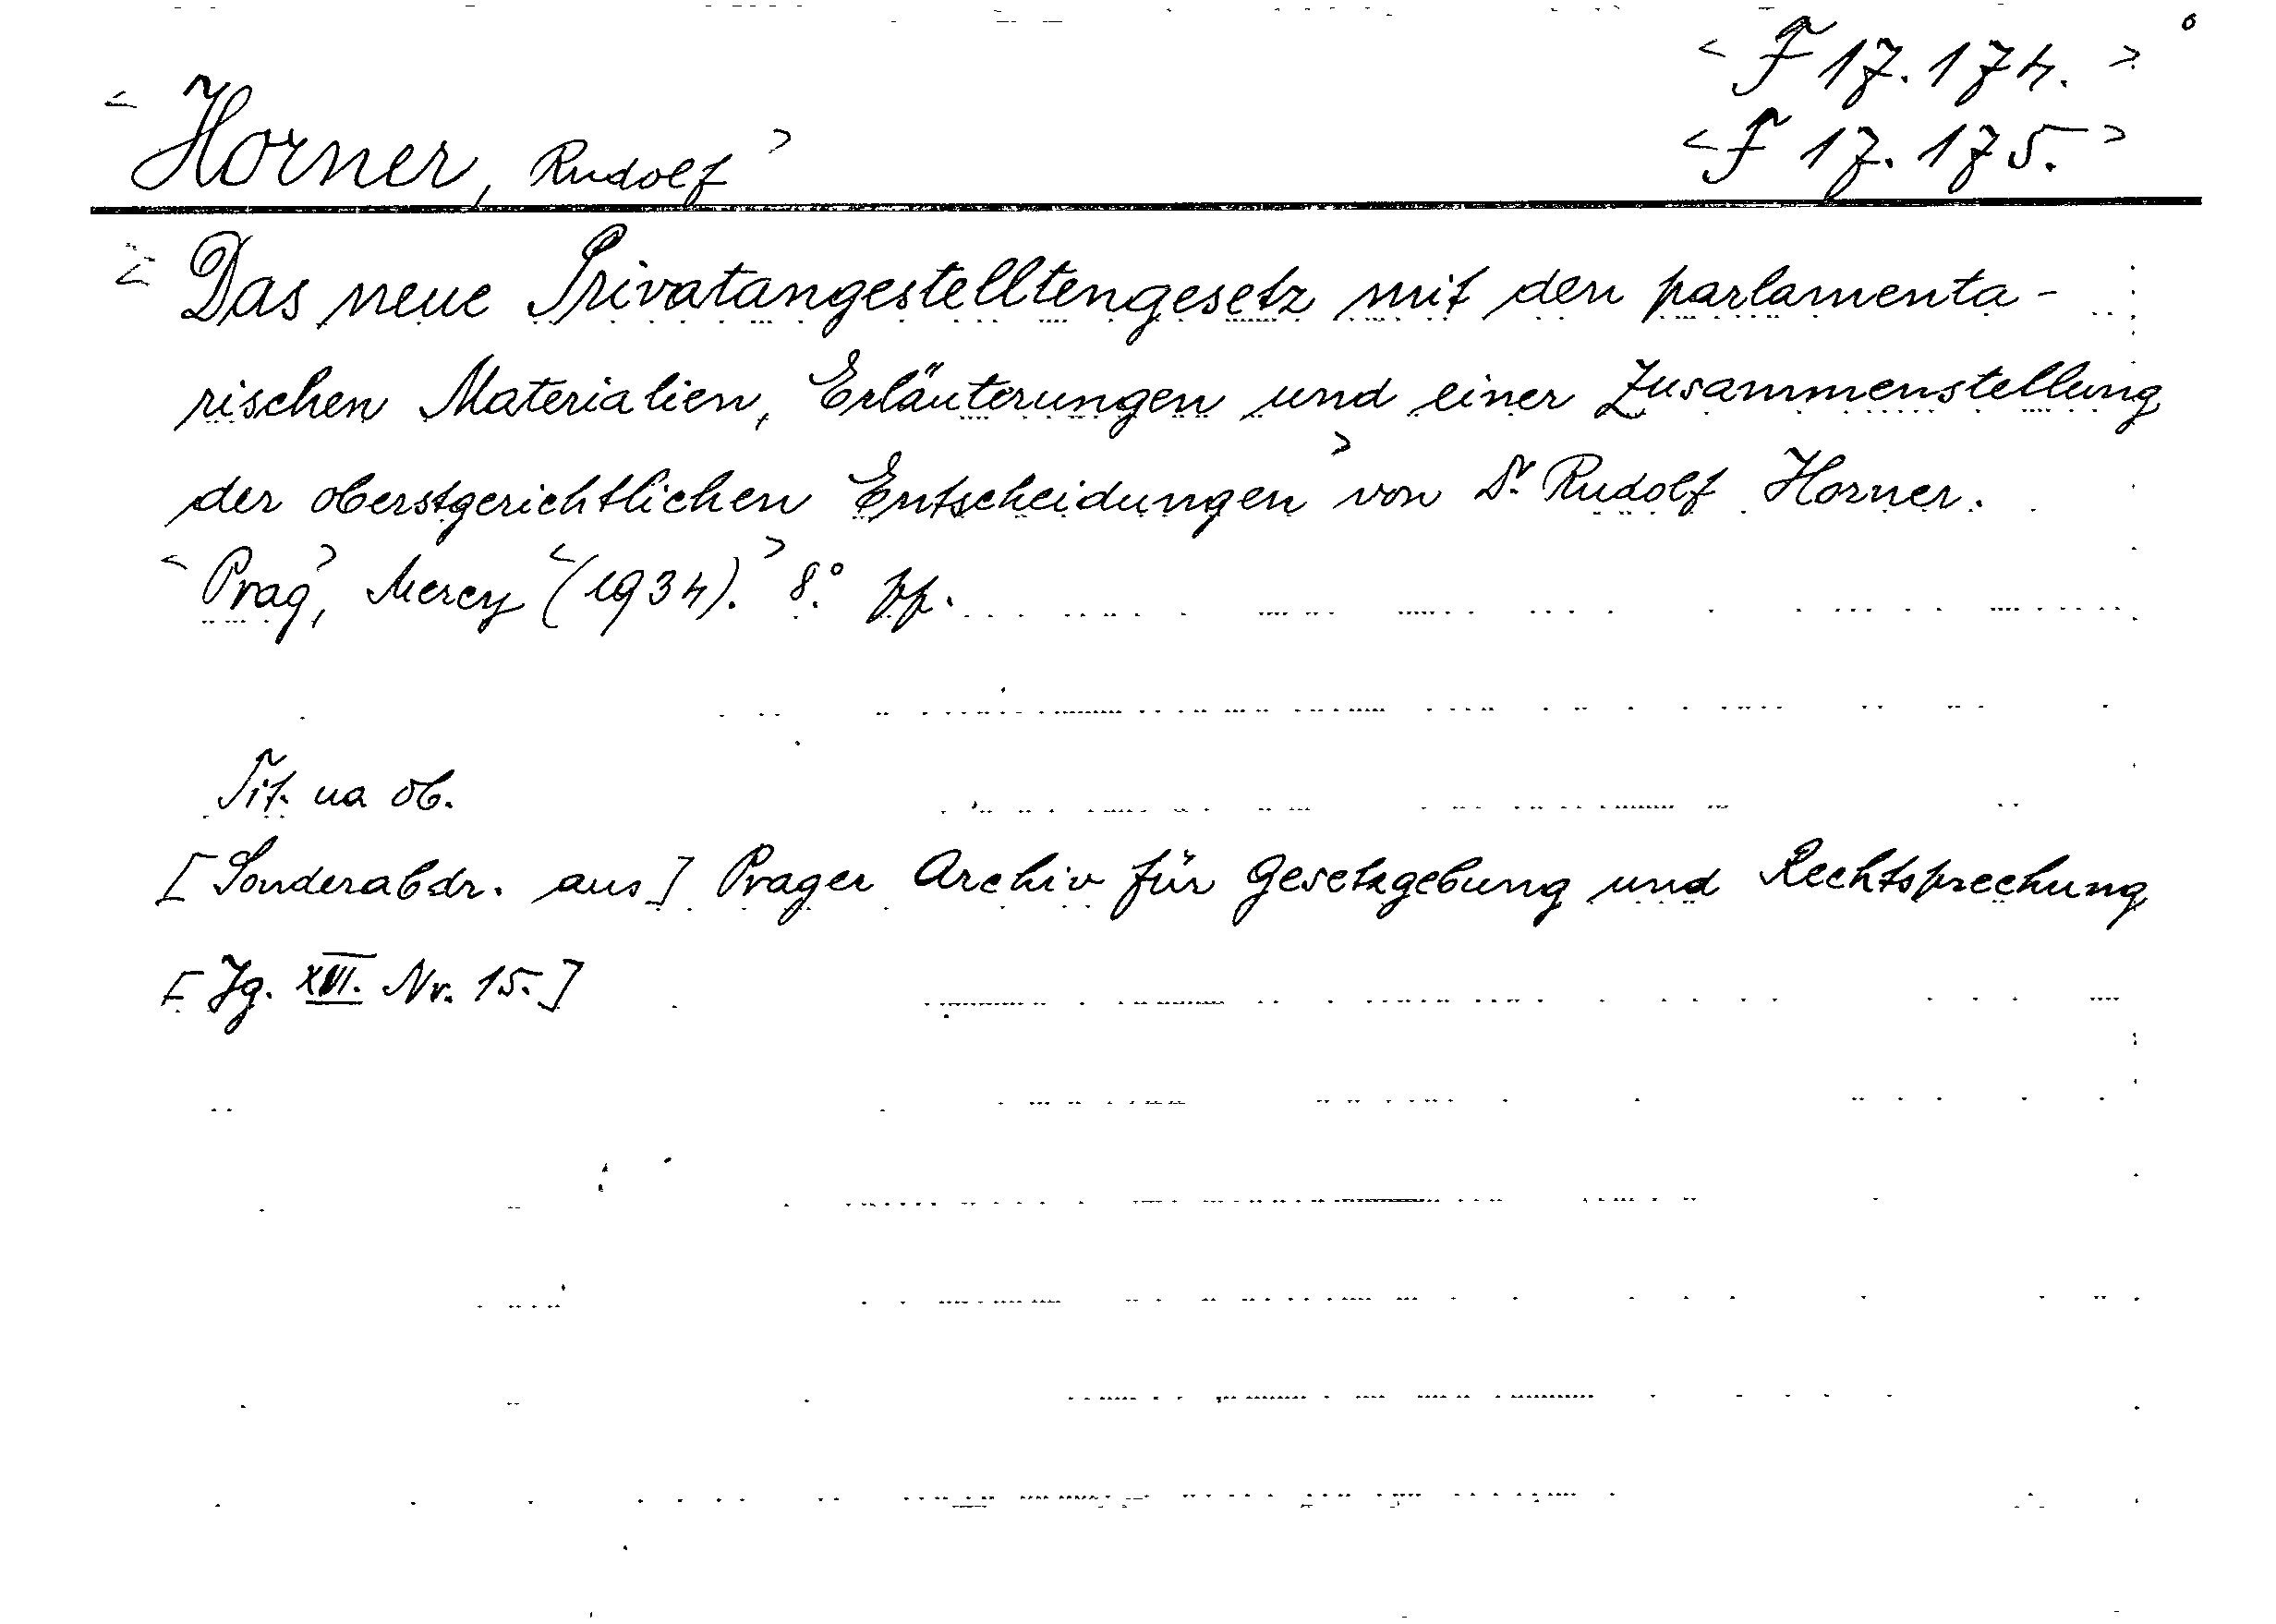 < F 17.174. >
< Horner, Rudolf >
< F 17.175. >
< Das neue Privatangestelltengesetz mit den parlamenta-
rischen Materialien, Erläuterungen und einer Zusammenstellung
der oberstgerichtlichen Entscheidungen > von Dr. Rudolf Horner.
< Prag >, Mercy < (1934). > 8.°
Tit. na ob.
[Sonderabdr. aus] Prager Archiv für Gesetzgebung und Rechtsprechung
[Jg. XVI. Nr. 15.]